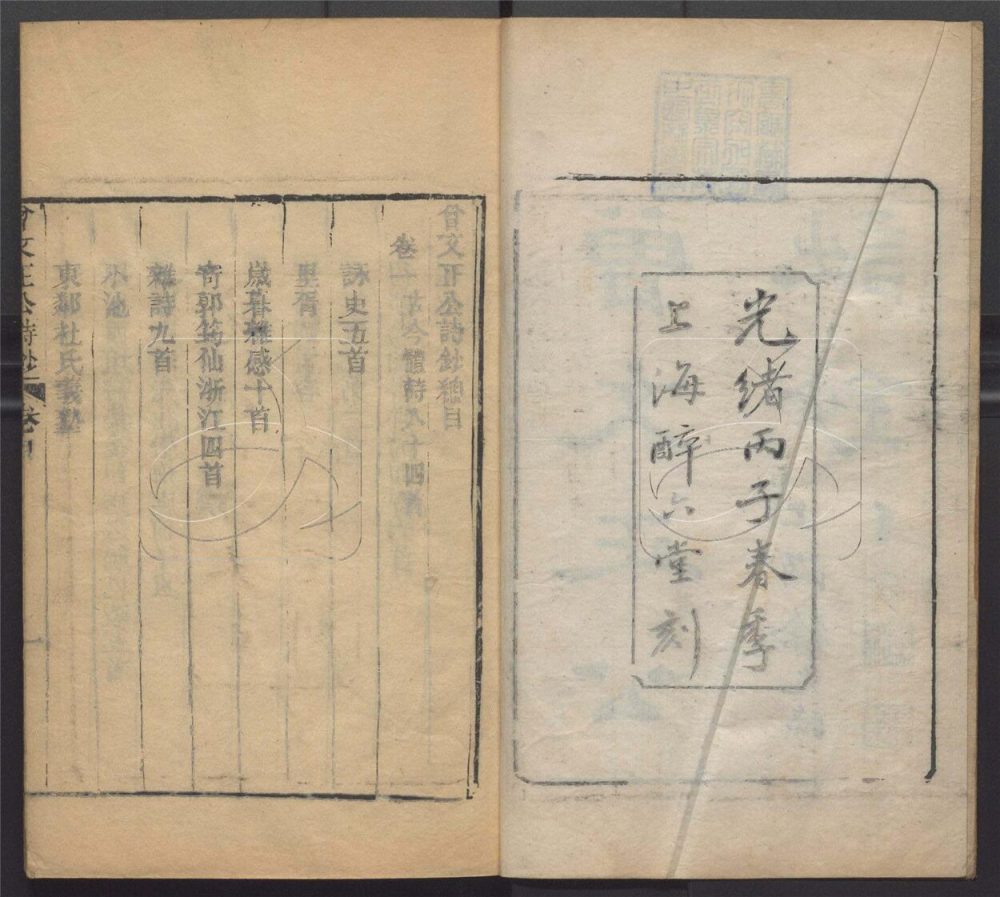 光緒丙子春季
上海醉六堂刻
曾文正公詩鈔總目
卷一 古今體詩八十四首
詠史五首
里胥
歲暮雜感十首
寄郭筠仙浙江四首
雜詩九首
小池
東鄰杜氏義塾
曾文正公詩鈔 卷目 一